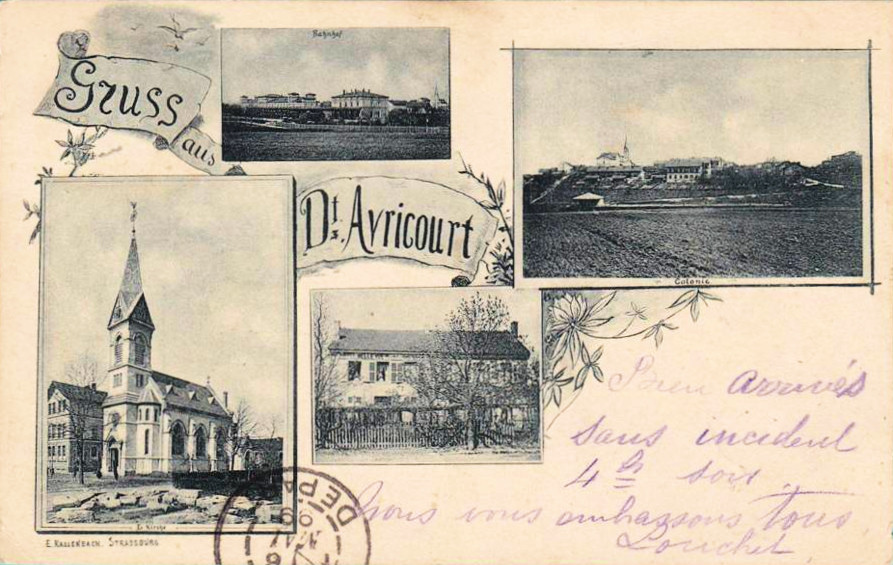 Gruss
aus
Bahnhof
Dts. Avricourt
Colonie
Ev. Kirche
E. KALLENBACH, STRASSBURG
Bien arrivés
sans incident
4 h soir
Nous vous embrassons tous
Louchet